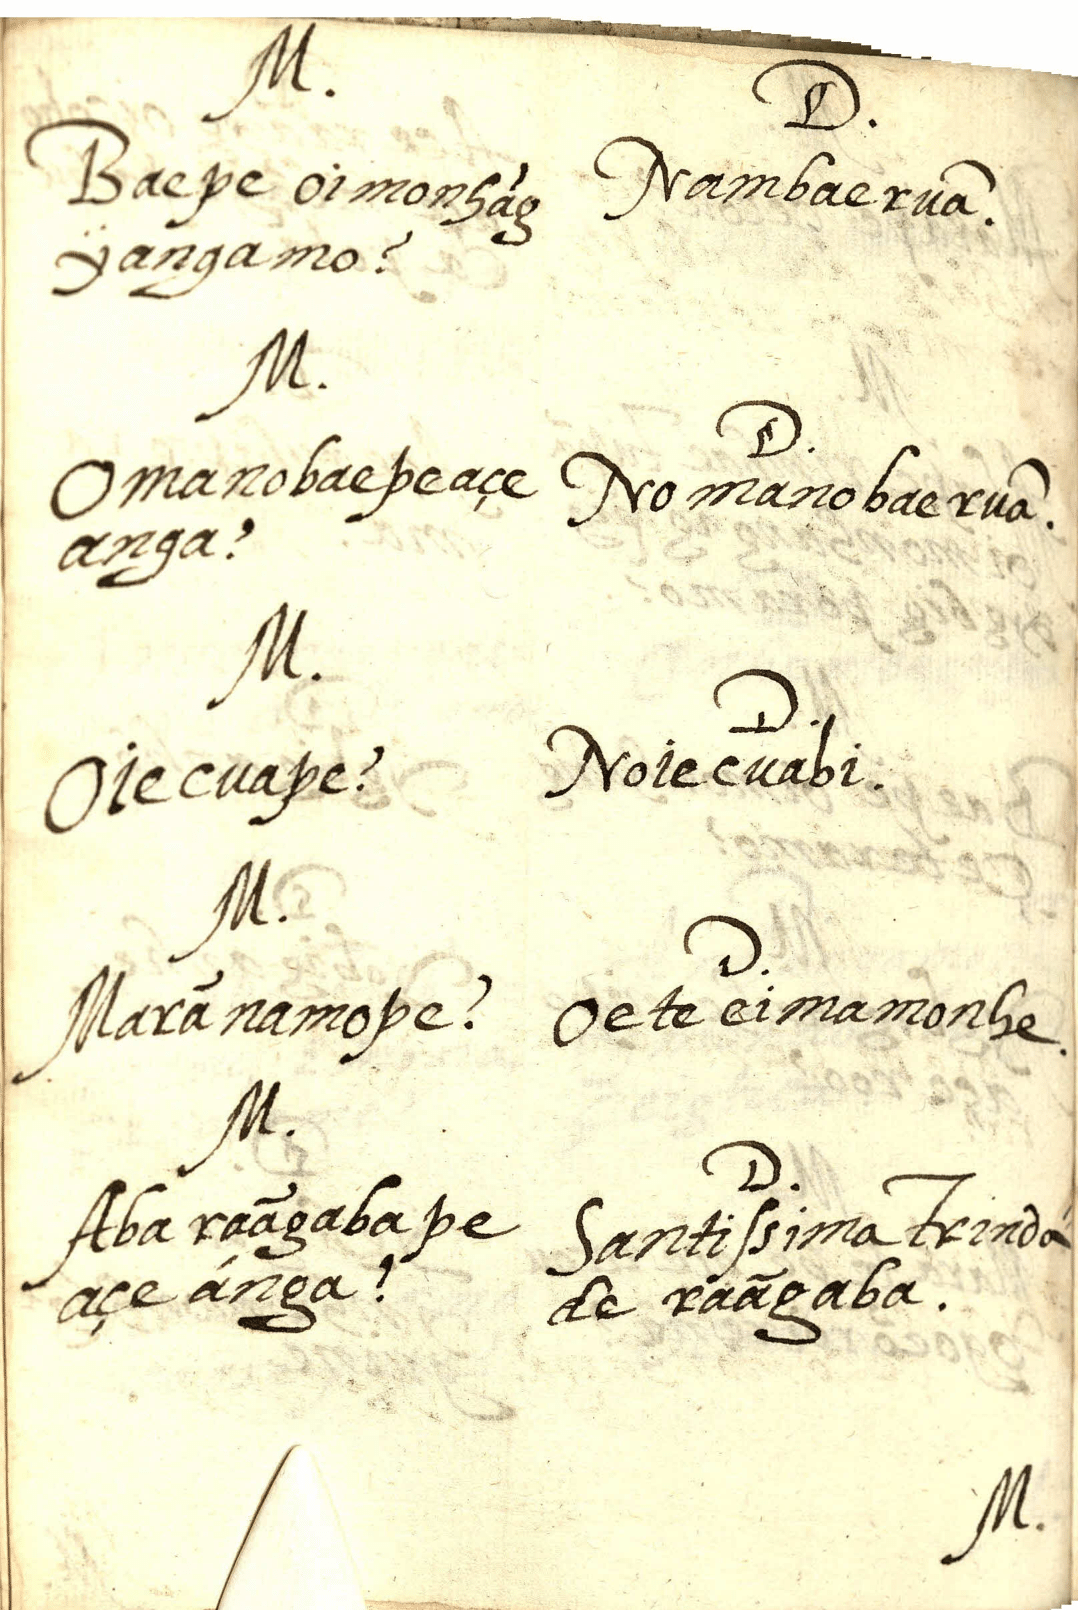 M.
Baepe oimonhãg
ÿangamo?
D.
Nambaeruã.
M.
Omanobaepeaçe
anga?
D.
Nomanobaeruã.
M.
Oiecuape?
D.
Noiecuabi.
M.
Marãnamope?
D.
Oeteeimamonhe.
M.
Aba raãgabape
açe ánga?
D.
Santissima Trinda
de raãgaba.
M.